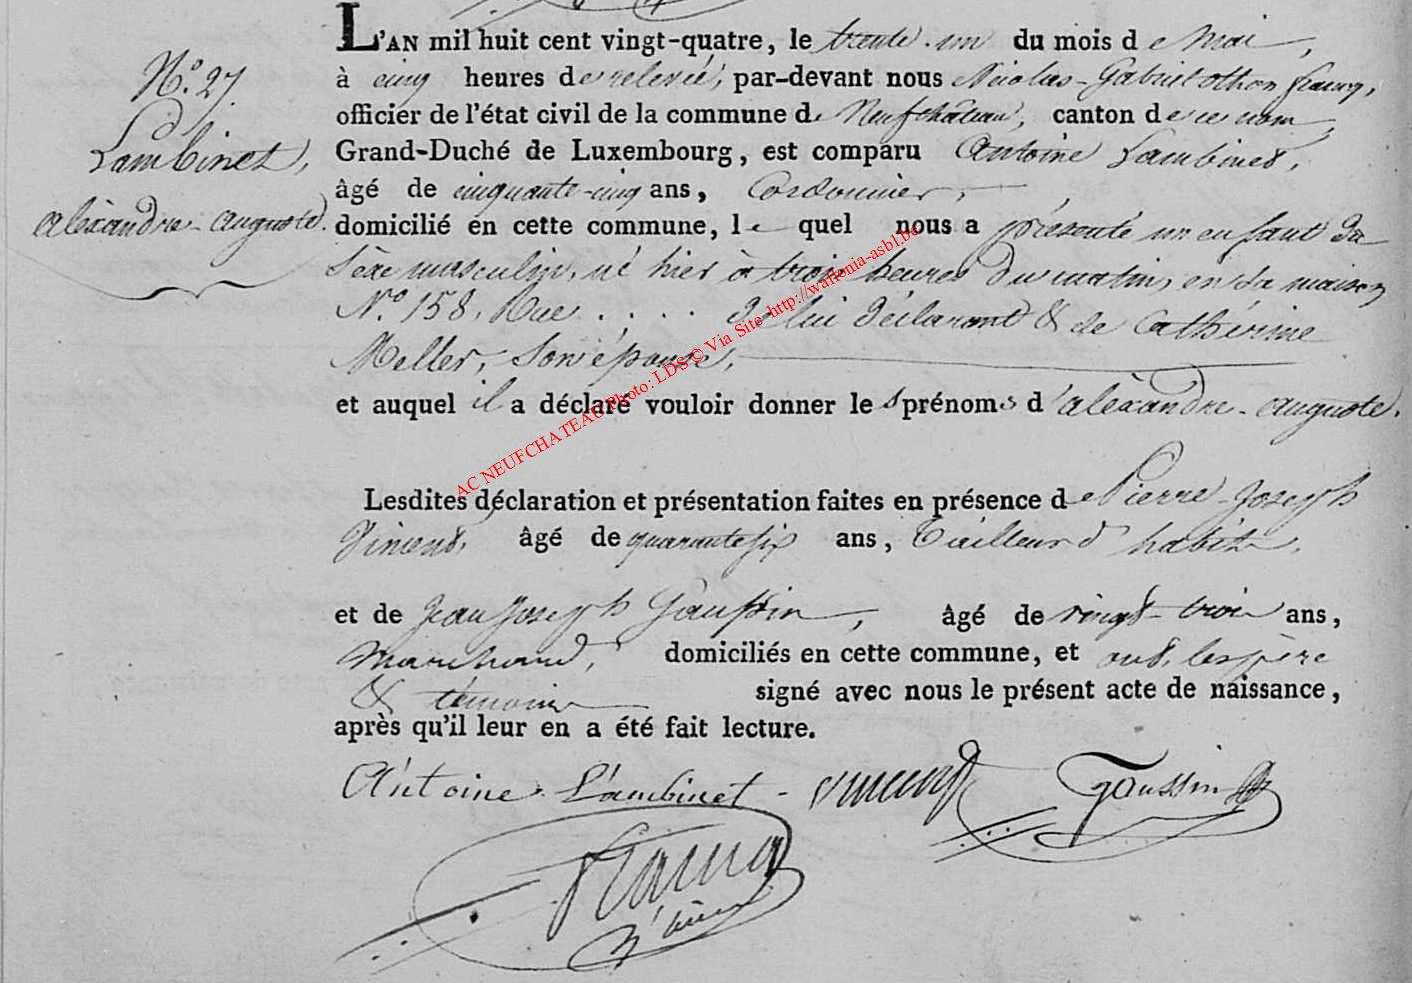 N.° 27.
Lambinet,
alèxandre-auguste.
L'AN mil huit cent vingt-quatre, le trente-un du mois de Mai,
à cinq heures de relevée, par-devant nous Nicolas-Gabriel othon
officier de l'état civil de la commune de Neufchâteau, canton de ce nom,
Grand-Duché de Luxembourg, est comparu Antoine Lambinet,
âgé de cinquante-cinq ans, Cordonnier,
domicilié en cette commune, lequel nous a présenté un enfant du
sèxe masculin, né hier à trois heures du matin, en sa maison
N.° 158, Rue . . . . de lui déclarant & de Cathérine
Meller, son épouse,
et auquel il a déclaré vouloir donner les prénoms d'alèxandre-auguste.
Lesdites déclaration et présentation faites en présence de Pierre-Joseph
Vincent, âgé de quarante six ans, Tailleur d'habits,
et de Jean Joseph Gaussin, âgé de vingt-trois ans,
Marchand, domiciliés en cette commune, et ont, les père
& témoins signé avec nous le présent acte de naissance,
après qu'il leur en a été fait lecture.
Antoine Lambinet Vincent Gaussin
AC NEUFCHATEAU Photo: LDS © Via Site http://wallonia-asbl.be